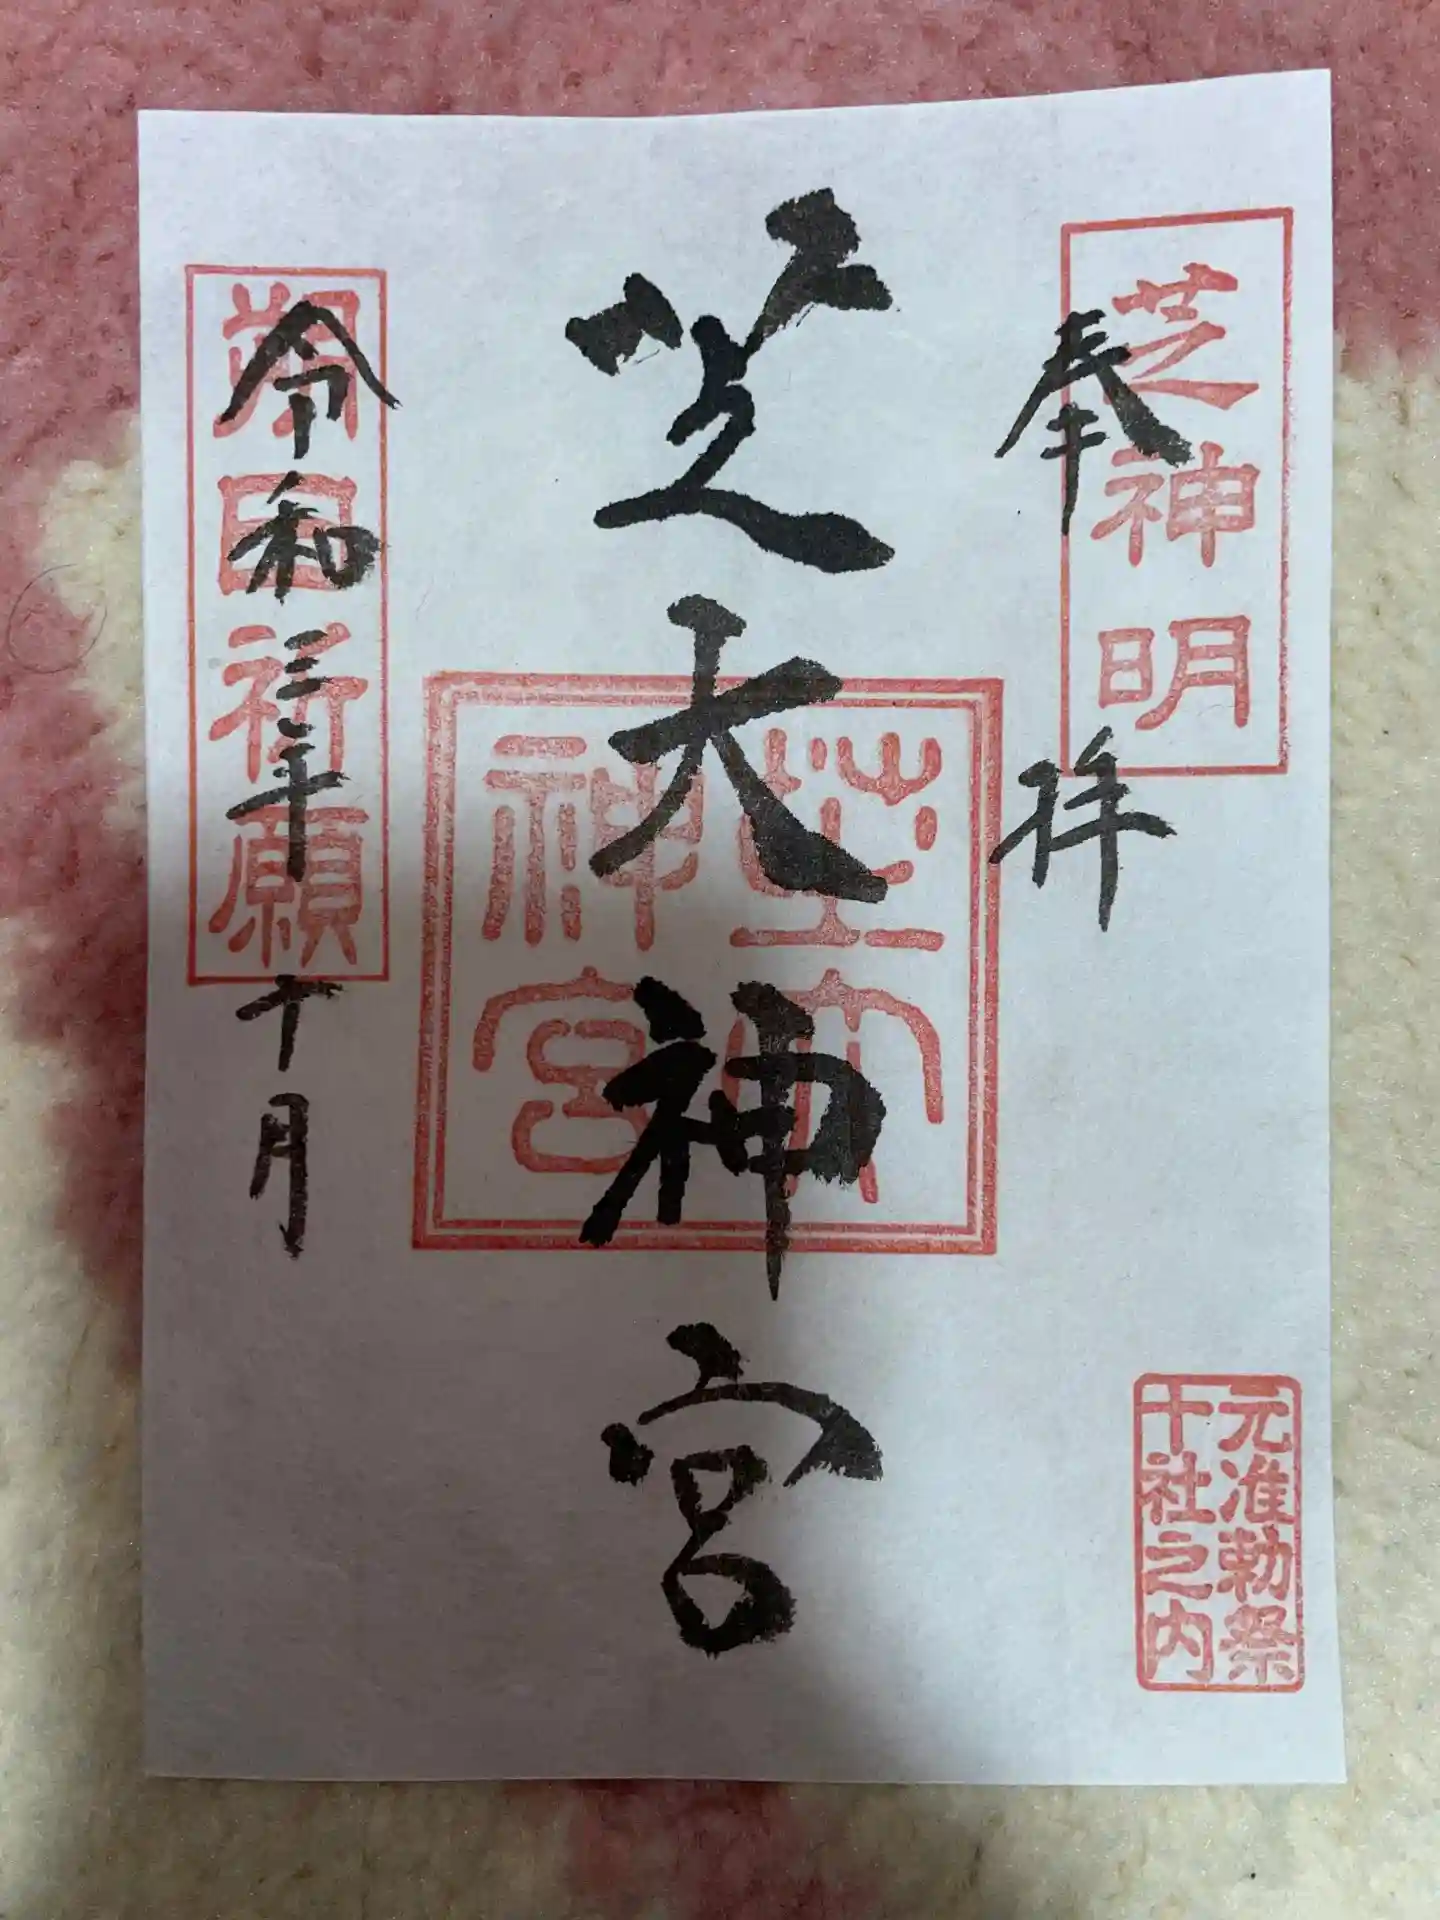 奉拝
芝神明
芝大神宮
芝大
神宮
元准勅祭
十社之内
朔日祈願
令和三年十月